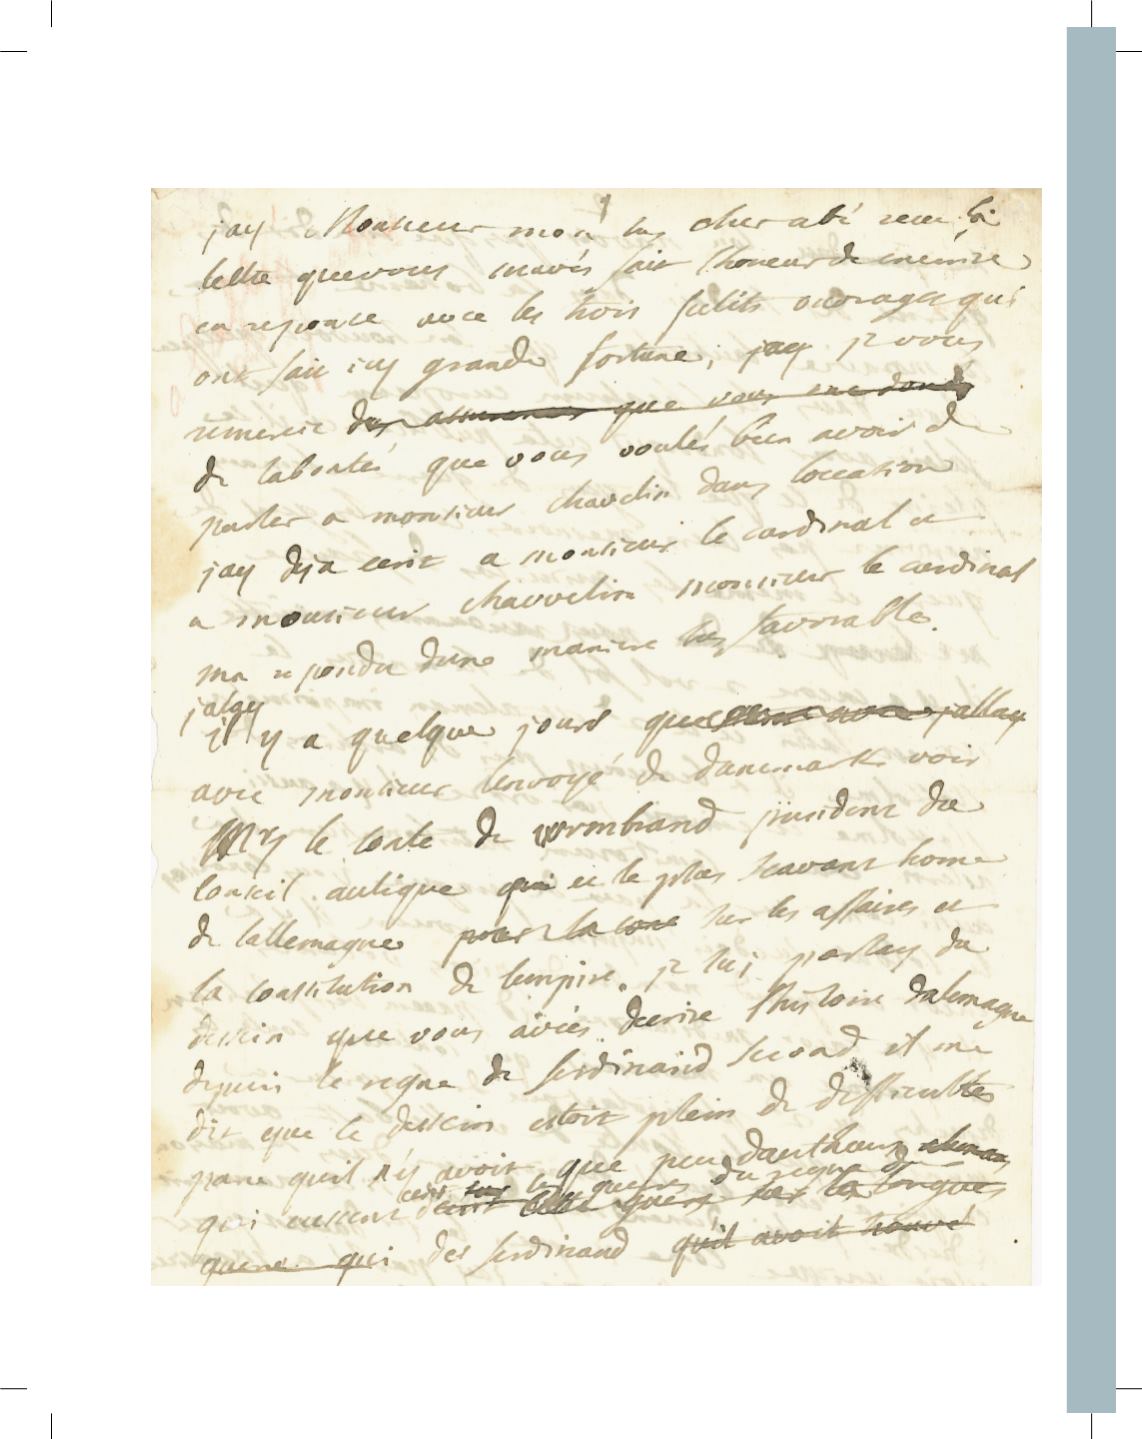 jay lhonneur mon tres cher abé receu la
lettre que vous mavés fait lhoneur de mecrire
en reponce avec les trois petits ouvrages qui
ont fait icy grande fortune, jay je vous
remercie des assurances que vous me donés
de la bontés que vous voulés bien avoir de
parler a monsieur chavelin dans loccasion
jay deja ecrit a monsieur le cardinal et
a monsieur chauvelin monsieur le cardinal
ma repondu dune maniere tres favorable.
jalay
il y a quelque jours que jallay
avec monsieur lenvoyé de danemark voir
Mr le conte de wrmbrand president du
conseil aulique qui est le plus scavant home
de lallemagne pour la sur les affaires et
la constitution de lempire. je lui parlay du
dessein que vous aviés decrire lhistoire dalemagne
depuis le regne de ferdinand second il me
dit que le dessein estoit plein de difficultés
parce quil ny avoit que peu dautheurs
ecrit sur les guerres du regne de
qui eussent decrit cette guerre sur les longues
guerre qui des ferdinand quil avoit trouvé